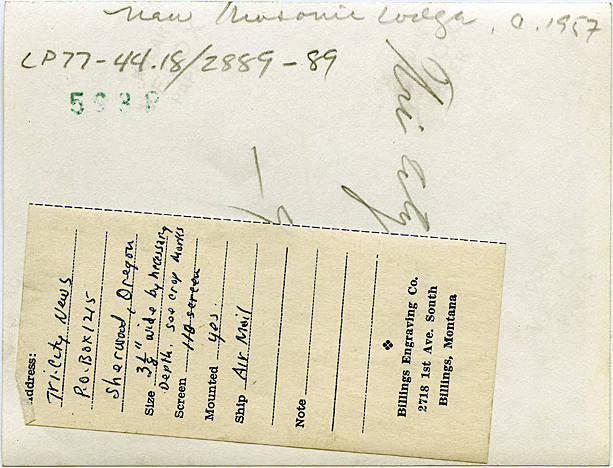 New Masonic Lodge, c. 1957
LP77-44.18/2889-89
Tri City
Address:
Tri.City News
P.O. Box 1215
Sherwood, Oregon
Size 3 1/8" wide by necessary
Depth. see crop marks
Screen 110 screen
Mounted yes.
Ship Air Mail
Note
Billings Engraving Co.
2718 1st Ave. South
Billings, Montana